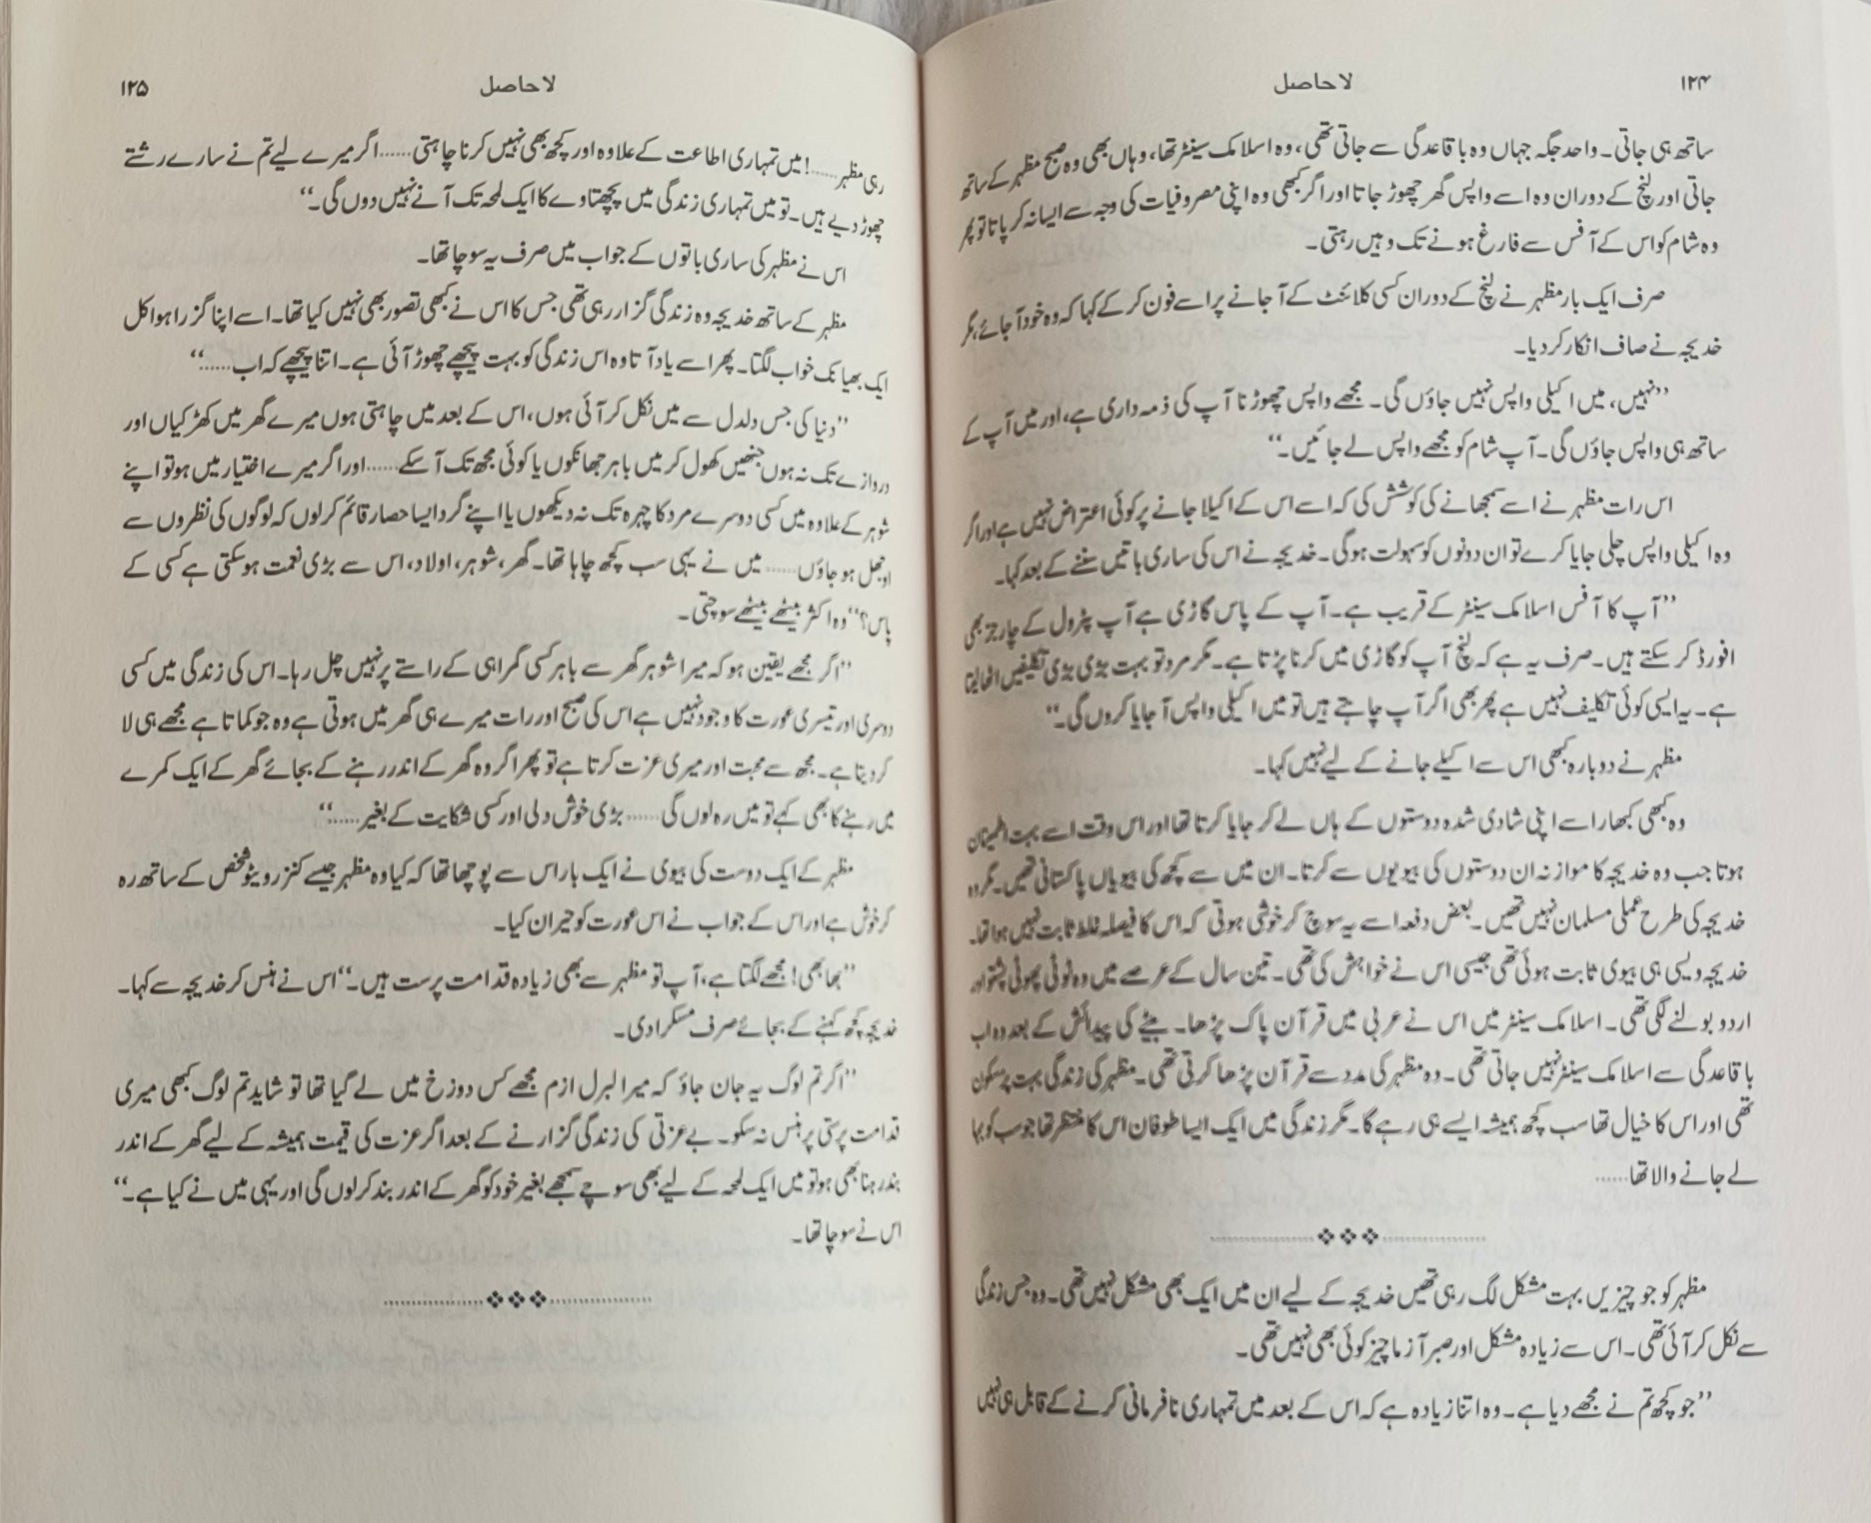 ۱۲۴
لاحاصل
ساتھ ہی جاتی۔ واحد جگہ جہاں وہ باقاعدگی سے جاتی تھی، وہ اسلامک سینٹر تھا، وہاں بھی وہ صبح مظہر کے ساتھ
جاتی اور لنچ کے دوران وہ اسے واپس گھر چھوڑ جاتا اور اگر کبھی وہ اپنی مصروفیات کی وجہ سے ایسا نہ کر پاتا تو پھر
وہ شام کو اس کے آفس سے فارغ ہونے تک وہیں رہتی۔
صرف ایک بار مظہر نے لنچ کے دوران کسی کلائنٹ کے آ جانے پر اسے فون کر کے کہا کہ وہ خود آ جائے، مگر
خدیجہ نے صاف انکار کر دیا۔
”نہیں، میں اکیلی واپس نہیں جاؤں گی۔ مجھے واپس چھوڑنا آپ کی ذمہ داری ہے، اور میں آپ کے
ساتھ ہی واپس جاؤں گی۔ آپ شام کو مجھے واپس لے جائیں۔“
اس رات مظہر نے اسے سمجھانے کی کوشش کی کہ اسے اس کے اکیلا جانے پر کوئی اعتراض نہیں ہے اور اگر
وہ اکیلی واپس چلی جایا کرے تو ان دونوں کو سہولت ہوگی۔ خدیجہ نے اس کی ساری باتیں سننے کے بعد کہا۔
”آپ کا آفس اسلامک سینٹر کے قریب ہے۔ آپ کے پاس گاڑی ہے آپ پٹرول کے چارجز بھی
افورڈ کر سکتے ہیں۔ صرف یہ ہے کہ لنچ آپ کو گاڑی میں کرنا پڑتا ہے۔ مگر مرد تو بہت بڑی بڑی تکلیفیں اٹھا لیتا
ہے۔ یہ ایسی کوئی تکلیف نہیں ہے پھر بھی اگر آپ چاہتے ہیں تو میں اکیلی واپس آ جایا کروں گی۔“
مظہر نے دوبارہ کبھی اس سے اکیلے جانے کے لیے نہیں کہا۔
وہ کبھی کبھار اسے اپنی شادی شدہ دوستوں کے ہاں لے کر جایا کرتا تھا اور اس وقت اسے بہت اطمینان
ہوتا جب وہ خدیجہ کا موازنہ ان دوستوں کی بیویوں سے کرتا۔ ان میں سے کچھ کی بیویاں پاکستانی تھیں۔ مگر وہ
خدیجہ کی طرح عملی مسلمان نہیں تھیں۔ بعض دفعہ اسے یہ سوچ کر خوشی ہوتی کہ اس کا فیصلہ غلط ثابت نہیں ہوا تھا۔
خدیجہ ویسی ہی بیوی ثابت ہوئی تھی جیسی اس نے خواہش کی تھی۔ تین سال کے عرصے میں وہ ٹوٹی پھوٹی پشتو اور
اردو بولنے لگی تھی۔ اسلامک سینٹر میں اس نے عربی میں قرآن پاک پڑھا۔ بیٹے کی پیدائش کے بعد وہ اب
باقاعدگی سے اسلامک سینٹر نہیں جاتی تھی۔ وہ مظہر کی مدد سے قرآن پڑھا کرتی تھی۔ مظہر کی زندگی بہت پرسکون
تھی اور اس کا خیال تھا سب کچھ ہمیشہ ایسے ہی رہے گا۔ مگر زندگی میں ایک ایسا طوفان اس کا منتظر تھا جو سب کو بہا
لے جانے والا تھا......
مظہر کو جو چیزیں بہت مشکل لگ رہی تھیں خدیجہ کے لیے ان میں ایک بھی مشکل نہیں تھی۔ وہ جس زندگی
سے نکل کر آئی تھی۔ اس سے زیادہ مشکل اور صبر آزما چیز کوئی بھی نہیں تھی۔
”جو کچھ تم نے مجھے دیا ہے۔ وہ اتنا زیادہ ہے کہ اس کے بعد میں تمہاری نافرمانی کرنے کے قابل ہی نہیں
لاحاصل
۱۲۵
رہی مظہر......! میں تمہاری اطاعت کے علاوہ اور کچھ بھی نہیں کرنا چاہتی...... اگر میرے لیے تم نے سارے رشتے
چھوڑ دیے ہیں۔ تو میں تمہاری زندگی میں پچھتاوے کا ایک لمحہ تک آنے نہیں دوں گی۔“
اس نے مظہر کی ساری باتوں کے جواب میں صرف یہ سوچا تھا۔
مظہر کے ساتھ خدیجہ وہ زندگی گزار رہی تھی جس کا اس نے کبھی تصور بھی نہیں کیا تھا۔ اسے اپنا گزرا ہوا کل
ایک بھیانک خواب لگتا۔ پھر اسے یاد آتا وہ اس زندگی کو بہت پیچھے چھوڑ آئی ہے۔ اتنا پیچھے کہ اب......“
”دنیا کی جس دلدل سے میں نکل کر آئی ہوں، اس کے بعد میں چاہتی ہوں میرے گھر میں کھڑکیاں اور
دروازے تک نہ ہوں جنھیں کھول کر میں باہر جھانکوں یا کوئی مجھ تک آ سکے...... اور اگر میرے اختیار میں ہو تو اپنے
شوہر کے علاوہ میں کسی دوسرے مرد کا چہرہ تک نہ دیکھوں یا اپنے گرد ایسا حصار قائم کر لوں کہ لوگوں کی نظروں سے
اوجھل ہو جاؤں...... میں نے یہی سب کچھ چاہا تھا۔ گھر، شوہر، اولاد، اس سے بڑی نعمت ہو سکتی ہے کسی کے
پاس؟“ وہ اکثر بیٹھے بیٹھے سوچتی۔
”اگر مجھے یقین ہو کہ میرا شوہر گھر سے باہر کسی گمراہی کے راستے پر نہیں چل رہا۔ اس کی زندگی میں کسی
دوسری اور تیسری عورت کا وجود نہیں ہے اس کی صبح اور رات میرے ہی گھر میں ہوتی ہے وہ جو کماتا ہے مجھے ہی لا
کر دیتا ہے۔ مجھ سے محبت اور میری عزت کرتا ہے تو پھر اگر وہ گھر کے اندر رہنے کے بجائے گھر کے ایک کمرے
میں رہنے کا بھی کہے تو میں رہ لوں گی...... بڑی خوش دلی اور کسی شکایت کے بغیر......“
مظہر کے ایک دوست کی بیوی نے ایک بار اس سے پوچھا تھا کہ کیا وہ مظہر جیسے کنزرویٹو شخص کے ساتھ رہ
کر خوش ہے اور اس کے جواب نے اس عورت کو حیران کیا۔
”بھابھی! مجھے لگتا ہے، آپ تو مظہر سے بھی زیادہ قدامت پرست ہیں۔“ اس نے ہنس کر خدیجہ سے کہا۔
خدیجہ کچھ کہنے کے بجائے صرف مسکرا دی۔
”اگر تم لوگ یہ جان جاؤ کہ میرا لبرل ازم مجھے کس دوزخ میں لے گیا تھا تو شاید تم لوگ کبھی میری
قدامت پرستی پر ہنس نہ سکو۔ بے عزتی کی زندگی گزارنے کے بعد اگر عزت کی قیمت ہمیشہ کے لیے گھر کے اندر
بند رہنا بھی ہو تو میں ایک لمحہ کے لیے بھی سوچے سمجھے بغیر خود کو گھر کے اندر بند کر لوں گی اور یہی میں نے کیا ہے۔“
اس نے سوچا تھا۔